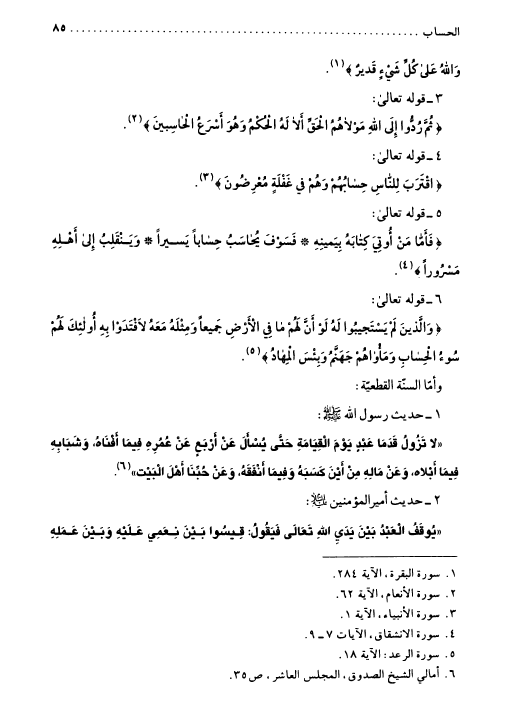 الحساب ........................................................ ٨٥
وَاللهُ عَلىٰ كُلِّ شَيْءٍ قَديرٌ ﴾(١).
٣ ـ قوله تعالىٰ:
﴿ ثُمَّ رُدُّوا إِلَى اللهِ مَوْلاٰهُمُ الْحَقِّ أَلاٰ لَهُ الْحُكْمُ وَهُوَ أَسْرَعُ الْحَاسِبينَ ﴾(٢).
٤ ـ قوله تعالىٰ:
﴿ اقْتَرَبَ لِلنّٰاسِ حِسٰابُهُمْ وَهُمْ في غَفْلَةٍ مُعْرِضُونَ ﴾(٣).
٥ ـ قوله تعالىٰ:
﴿ فَأَمّٰا مَنْ أُوتِيَ كِتٰابَهُ بِيَمينِهِ * فَسَوْفَ يُحٰاسَبُ حِسٰاباً يَسيراً * وَيَنْقَلِبُ إِلىٰ أَهْلِهِ
مَسْرُوراً ﴾(٤).
٦ ـ قوله تعالىٰ:
﴿ وَالَّذينَ لَمْ يَسْتَجيبُوا لَهُ لَوْ أَنَّ لَهُمْ مٰا فِي الْأَرْضِ جَميعاً وَمِثْلَهُ مَعَهُ لاَفْتَدَوْا بِهِ أُولٰئِكَ لَهُمْ
سُوءُ الْحِسٰابِ وَمَأْوٰاهُمْ جَهَنَّمُ وَبِئْسَ الْمِهٰادُ ﴾(٥).
وأمّا السنّة القطعيّة:
١ ـ حديث رسول الله ﷺ:
«لا تَزُولُ قَدَمَا عَبْدٍ يَوْمَ الْقِيَامَةِ حَتَّى يُسْأَلَ عَنْ أَرْبَعٍ عَنْ عُمُرِهِ فِيمَا أَفْنَاهُ، وَشَبَابِهِ
فِيمَا أَبْلاه، وَعَنْ مَالِهِ مِنْ أَيْنَ كَسَبَهُ وَفِيمَا أَنْفَقَهُ، وَعَنْ حُبِّنَا أَهْلَ الْبَيْت»(٦).
٢ ـ حديث أميرالمؤمنين ﷷ:
«يُوقَفُ الْعَبْدُ بَيْنَ يَدَيِ اللهِ تَعَالَى فَيَقُولُ: قِيسُوا بَيْنَ نِعَمِي عَلَيْهِ وَبَيْنَ عَمَلِهِ
١. سورة البقرة، الآية ٢٨٤.
٢. سورة الأنعام، الآية ٦٢.
٣. سورة الأنبياء، الآية ١.
٤. سورة الانشقاق، الآيات ٧ ـ ٩.
٥. سورة الرعد: الآية ١٨.
٦. أمالي الشيخ الصدوق، المجلس العاشر، ص٣٥.